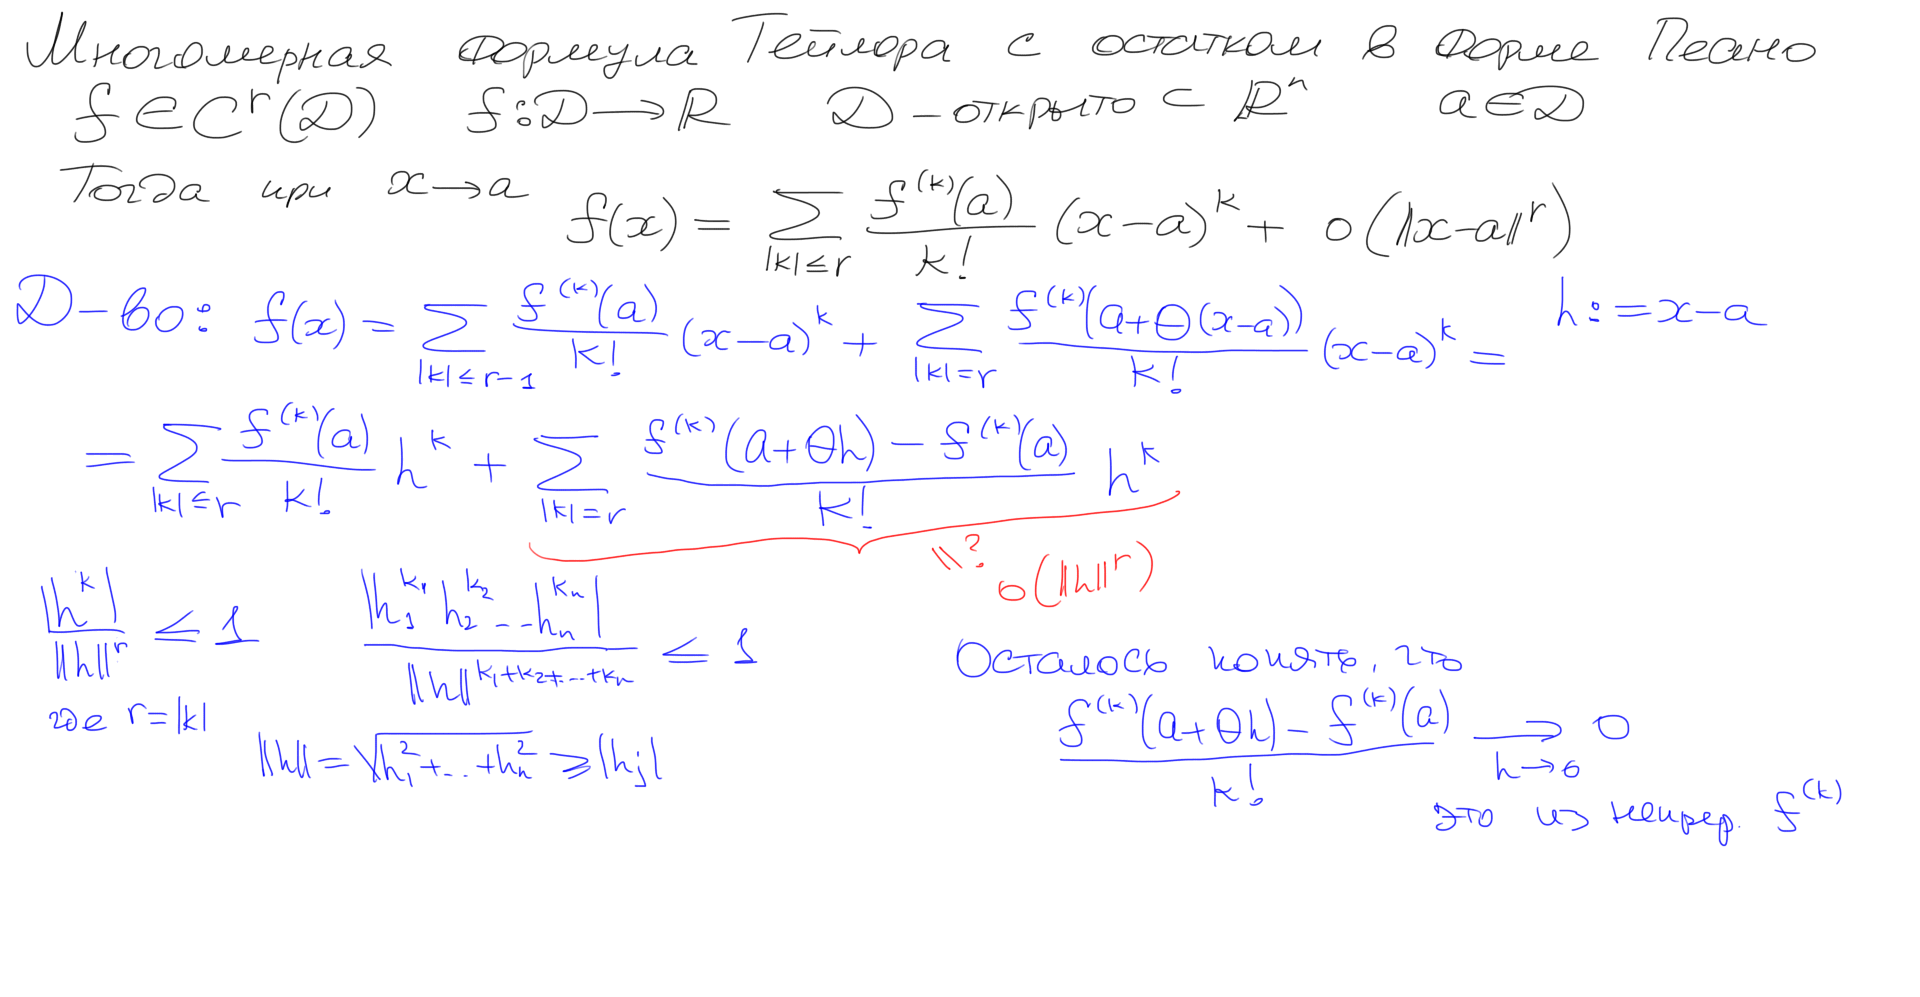 Многомерная формула Тейлора с остатком в форме Пеано
f ∈ C^r(D)   f: D → ℝ   D – открыто ⊂ ℝ^n   a ∈ D
Тогда при x → a   f(x) = ∑_{|k| ≤ r} \frac{f^{(k)}(a)}{k!} (x-a)^k + o(‖x-a‖^r)
Д-во: f(x) = ∑_{|k| ≤ r-1} \frac{f^{(k)}(a)}{k!} (x-a)^k + ∑_{|k|=r} \frac{f^{(k)}(a+θ(x-a))}{k!} (x-a)^k =   h := x-a
= ∑_{|k| ≤ r} \frac{f^{(k)}(a)}{k!} h^k + ∑_{|k|=r} \frac{f^{(k)}(a+θh) - f^{(k)}(a)}{k!} h^k
\\ ? o(‖h‖^r)
\frac{|h^k|}{‖h‖^r} ≤ 1   \frac{|h_1^{k_1} h_2^{k_2} ... h_n^{k_n}|}{‖h‖^{k_1+k_2+...+k_n}} ≤ 1
где r = |k|
‖h‖ = \sqrt{h_1^2 + ... + h_n^2} ≥ |h_j|
Осталось понять, что
\frac{f^{(k)}(a+θh) - f^{(k)}(a)}{k!} →_{h→0} 0
это из непрер. f^{(k)}